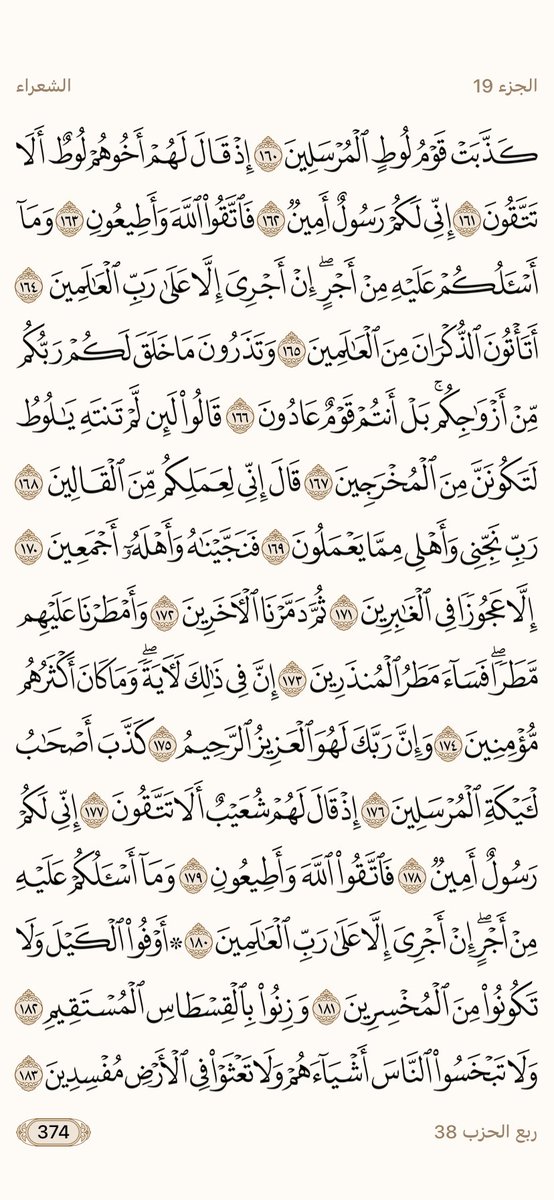 الجزء 19 الشعراء
كَذَّبَتْ قَوْمُ لُوطٍ ٱلْمُرْسَلِينَ ١٦٠ إِذْ قَالَ لَهُمْ أَخُوهُمْ لُوطٌ أَلَا
تَتَّقُونَ ١٦١ إِنِّى لَكُمْ رَسُولٌ أَمِينٌ ١٦٢ فَٱتَّقُوا۟ ٱللَّهَ وَأَطِيعُونِ ١٦٣ وَمَآ
أَسْـَٔلُكُمْ عَلَيْهِ مِنْ أَجْرٍ ۖ إِنْ أَجْرِىَ إِلَّا عَلَىٰ رَبِّ ٱلْعَـٰلَمِينَ ١٦٤
أَتَأْتُونَ ٱلذُّكْرَانَ مِنَ ٱلْعَـٰلَمِينَ ١٦٥ وَتَذَرُونَ مَا خَلَقَ لَكُمْ رَبُّكُم
مِّنْ أَزْوَٰجِكُم ۚ بَلْ أَنتُمْ قَوْمٌ عَادُونَ ١٦٦ قَالُوا۟ لَئِن لَّمْ تَنتَهِ يَـٰلُوطُ
لَتَكُونَنَّ مِنَ ٱلْمُخْرَجِينَ ١٦٧ قَالَ إِنِّى لِعَمَلِكُم مِّنَ ٱلْقَالِينَ ١٦٨
رَبِّ نَجِّنِى وَأَهْلِى مِمَّا يَعْمَلُونَ ١٦٩ فَنَجَّيْنَـٰهُ وَأَهْلَهُۥٓ أَجْمَعِينَ ١٧٠
إِلَّا عَجُوزًا فِى ٱلْغَـٰبِرِينَ ١٧١ ثُمَّ دَمَّرْنَا ٱلْـَٔاخَرِينَ ١٧٢ وَأَمْطَرْنَا عَلَيْهِم
مَّطَرًا ۖ فَسَآءَ مَطَرُ ٱلْمُنذَرِينَ ١٧٣ إِنَّ فِى ذَٰلِكَ لَـَٔايَةً ۖ وَمَا كَانَ أَكْثَرُهُم
مُّؤْمِنِينَ ١٧٤ وَإِنَّ رَبَّكَ لَهُوَ ٱلْعَزِيزُ ٱلرَّحِيمُ ١٧٥ كَذَّبَ أَصْحَـٰبُ
لْـَٔيْكَةِ ٱلْمُرْسَلِينَ ١٧٦ إِذْ قَالَ لَهُمْ شُعَيْبٌ أَلَا تَتَّقُونَ ١٧٧ إِنِّى لَكُمْ
رَسُولٌ أَمِينٌ ١٧٨ فَٱتَّقُوا۟ ٱللَّهَ وَأَطِيعُونِ ١٧٩ وَمَآ أَسْـَٔلُكُمْ عَلَيْهِ
مِنْ أَجْرٍ ۖ إِنْ أَجْرِىَ إِلَّا عَلَىٰ رَبِّ ٱلْعَـٰلَمِينَ ١٨٠ * أَوْفُوا۟ ٱلْكَيْلَ وَلَا
تَكُونُوا۟ مِنَ ٱلْمُخْسِرِينَ ١٨١ وَزِنُوا۟ بِٱلْقِسْطَاسِ ٱلْمُسْتَقِيمِ ١٨٢
وَلَا تَبْخَسُوا۟ ٱلنَّاسَ أَشْيَآءَهُمْ وَلَا تَعْثَوْا۟ فِى ٱلْأَرْضِ مُفْسِدِينَ ١٨٣
ربع الحزب 38 374